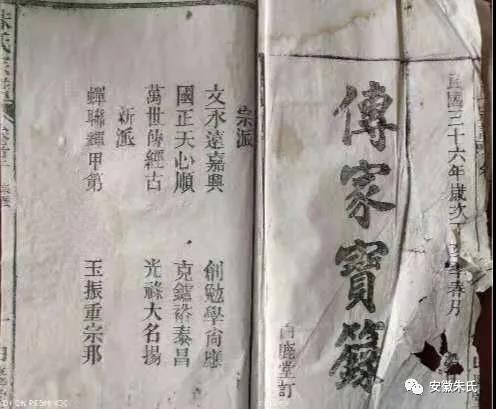 民國三十六年歲次丁亥春月
傳家寶籙
白鹿堂訂
宗派
文永遠嘉興 創勉學尚應
國正天心順 克鑪裕泰昌
萬世傳經古 光祿大名揚
新派
蟬聯輝甲第 玉振重宗邦
朱氏宗譜
安徽朱氏